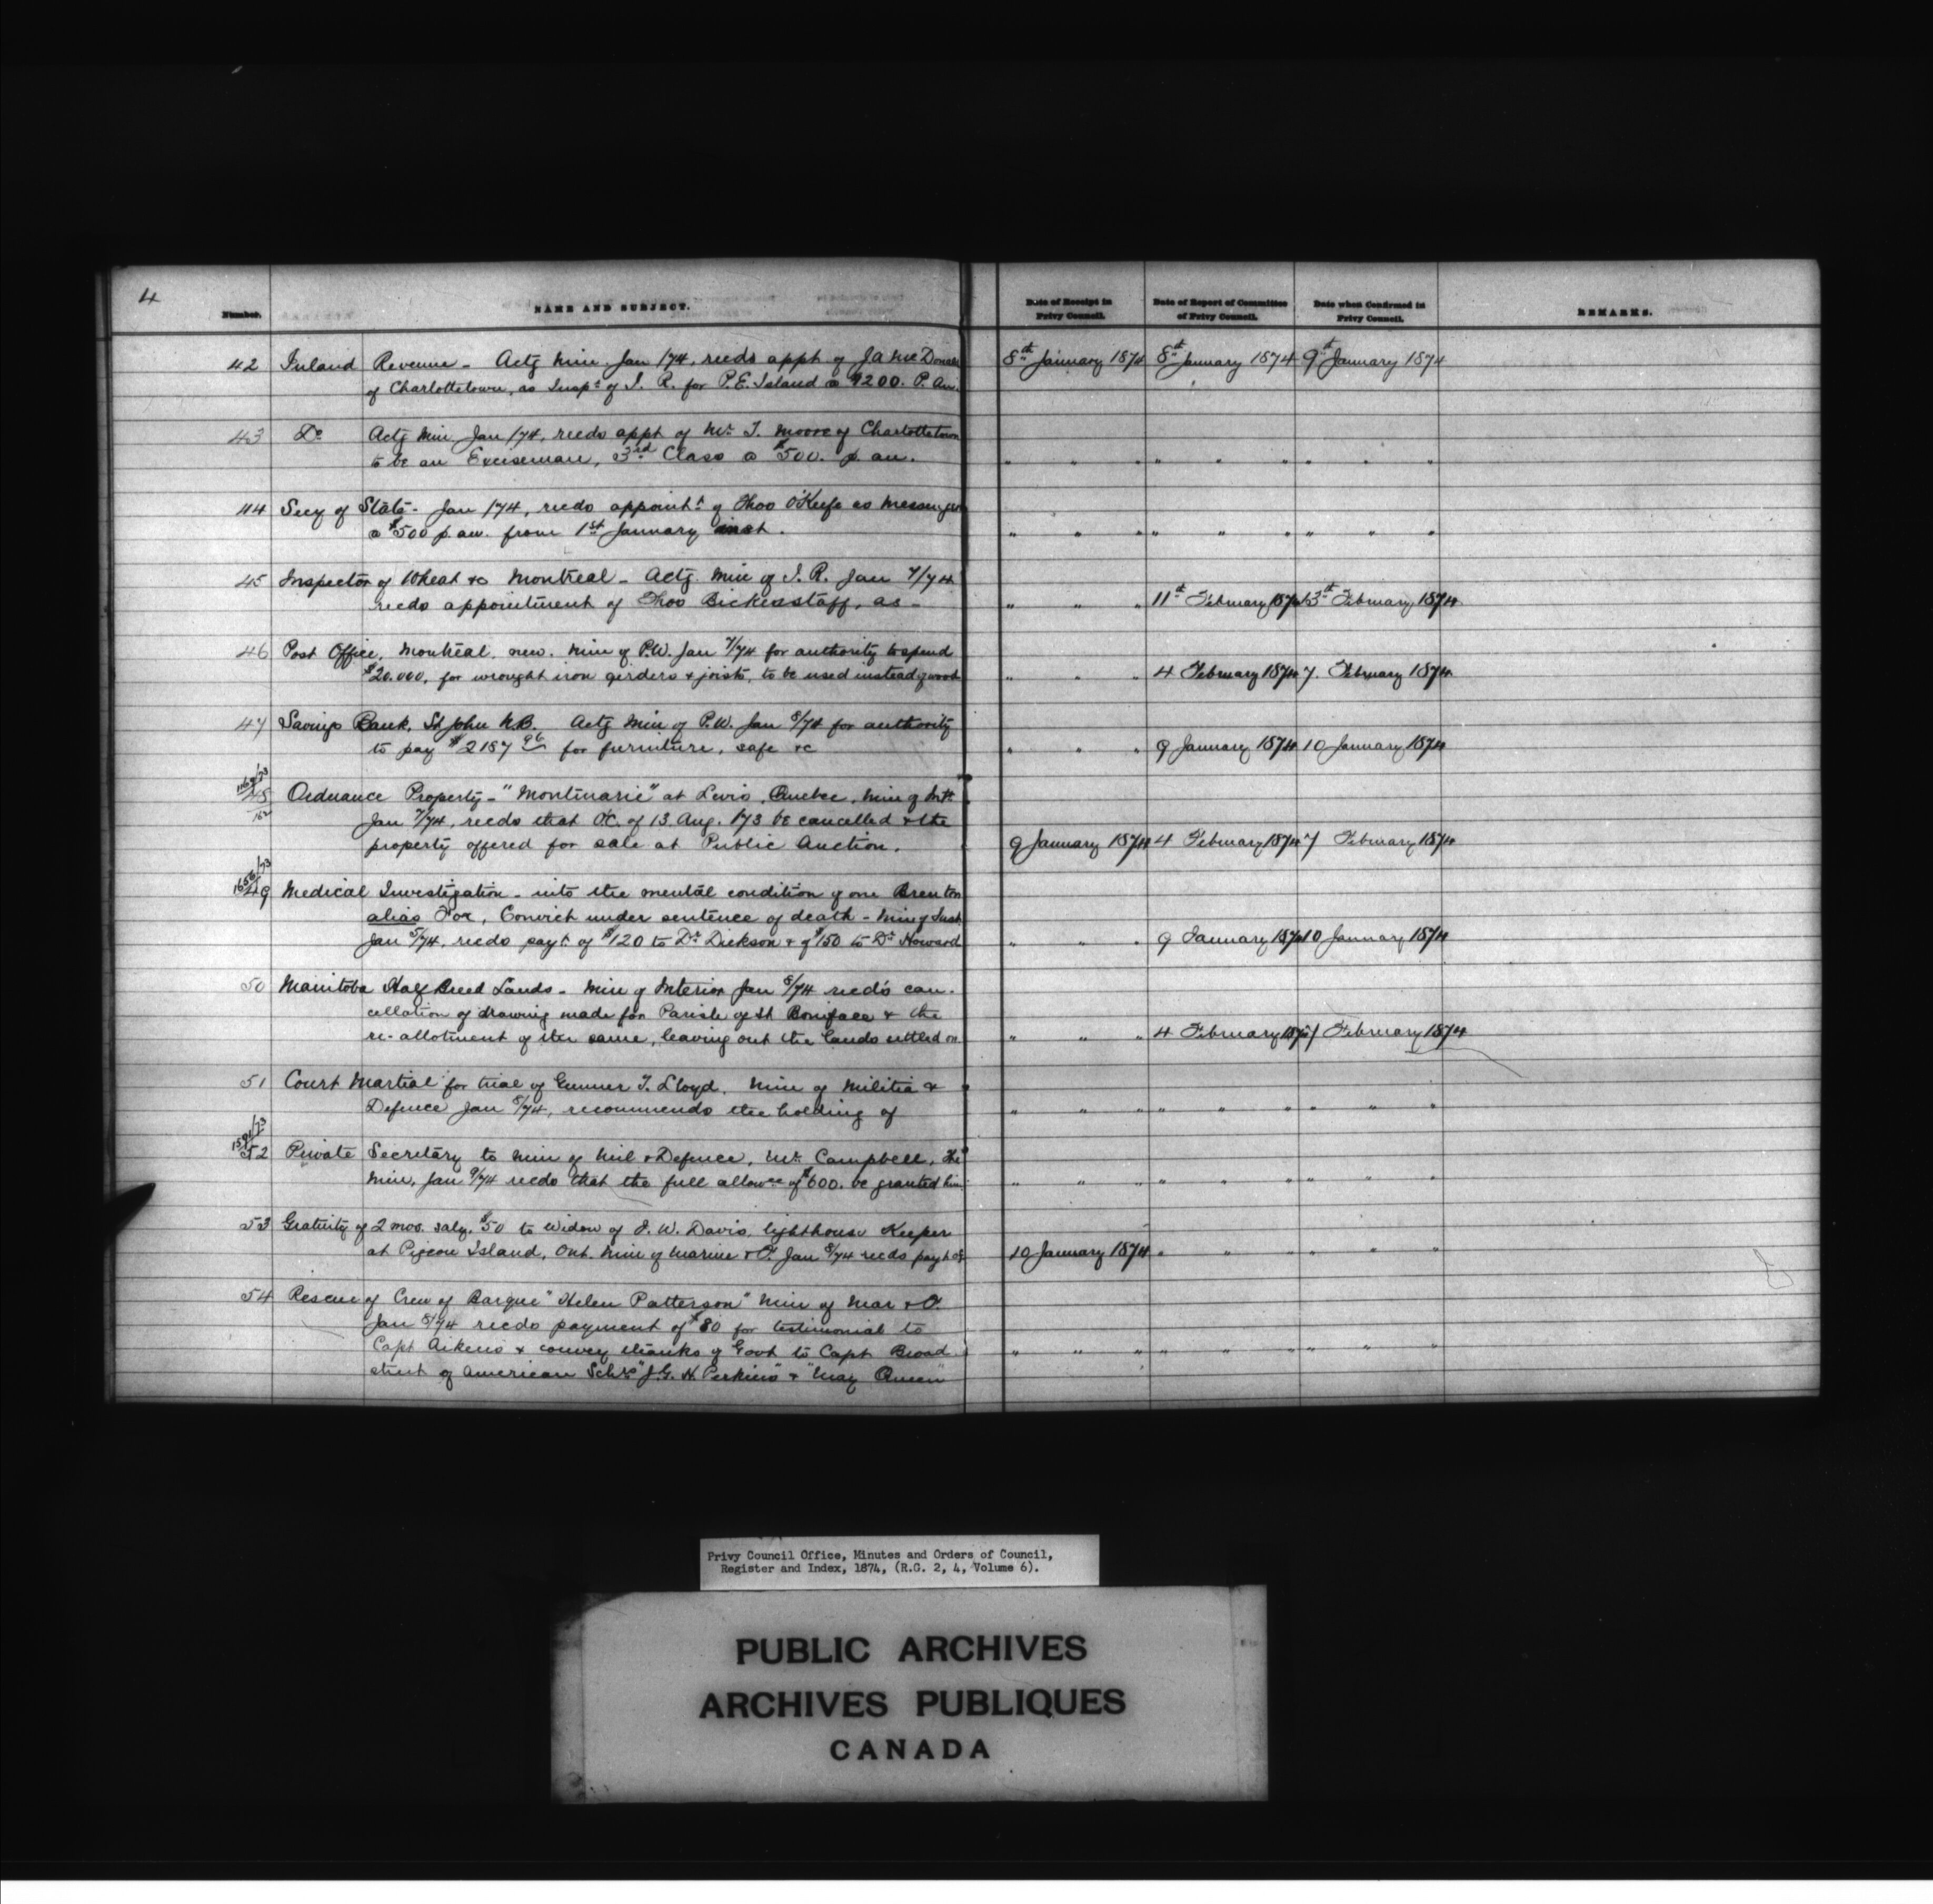 4
Number.
NAME AND SUBJECT.
Date of Receipt in Privy Council.
Date of Report of Committee of Privy Council.
Date when Confirmed in Privy Council.
REMARKS.
42 Inland Revenue - Actg Min Jan /74, recds appt of J A McDonald 8th January 1874 8th January 1874 9th January 1874
of Charlottetown, as Inspr of I. R. for P.E. Island @ 1200. P. An.
43 Do Actg Min Jan /74, recds appt of Mr T. Moore of Charlottetown
to be an Exciseman, 3rd Class @ $500. p. an. " " " " " " " " "
44 Secy of State - Jan /74, recds appointt of Thos O'Keefe as Messenger
@ $500 p. an. from 1st January inst. " " " " " " " " "
45 Inspector of Wheat &c Montreal - Actg Min of I. R. Jan 7/74
recds appointment of Thos Bickerstaff, as - " " " 11th February 1874 13th February 1874
46 Post Office, Montreal, new. Min of P.W. Jan 7/74 for authority to spend
$20.000, for wrought iron girders & joists, to be used instead of wood " " " 4 February 1874 7. February 1874
47 Savings Bank, St John N.B. Actg Min of P.W. Jan 8/74 for authority
to pay $2187 96 for furniture, safe &c " " " 9 January 1874 10 January 1874
48 Ordnance Property - "Montmarie" at Levis, Quebec, Min of Intr
Jan 7/74, recds that O.C. of 13 Aug. /73 be cancelled & the
property offered for sale at Public Auction. 9 January 1874 4 February 1874 7 February 1874
1656/73
49 Medical Investigation - into the mental condition of one Brenton
alias Fox, Convict under sentence of death - Min of Just
Jan 5/74, recds payt of $120 to Dr Dickson & of $150 to Dr Howard " " " 9 January 1874 10 January 1874
50 Manitoba Half Breed Lands - Min of Interior Jan 8/74 recds can-
cellation of drawing made for Parish of St Boniface & the
re-allotment of the same, leaving out the lands settled on " " " 4 February 1874 7 February 1874
51 Court Martial for trial of Gunner T. Lloyd. Min of Militia &
Defence Jan 8/74, recommends the holding of " " " " " " " " "
52 Private Secretary to Min of Mil & Defence, Mr Campbell, The
Min, Jan 9/74 recds that the full allowce of $600. be granted him " " " " " " " " "
53 Gratuity of 2 mos. saly. $50 to Widow of J. W. Davis, lighthouse Keeper
at Pigeon Island, Ont. Min of Marine & F. Jan 8/74 recds payt of 10 January 1874 " " " " " "
54 Rescue of Crew of Barque "Helen Patterson" Min of Mar & F.
Jan 8/74 recds payment of $80 for testimonial to
Capt Aikens & convey thanks of Govt to Capt Broad- " " " " " " " " "
street of American Schrs "J. G. H. Perkins" & "May Queen"
Privy Council Office, Minutes and Orders of Council,
Register and Index, 1874, (R.G. 2, 4, Volume 6).
PUBLIC ARCHIVES
ARCHIVES PUBLIQUES
CANADA